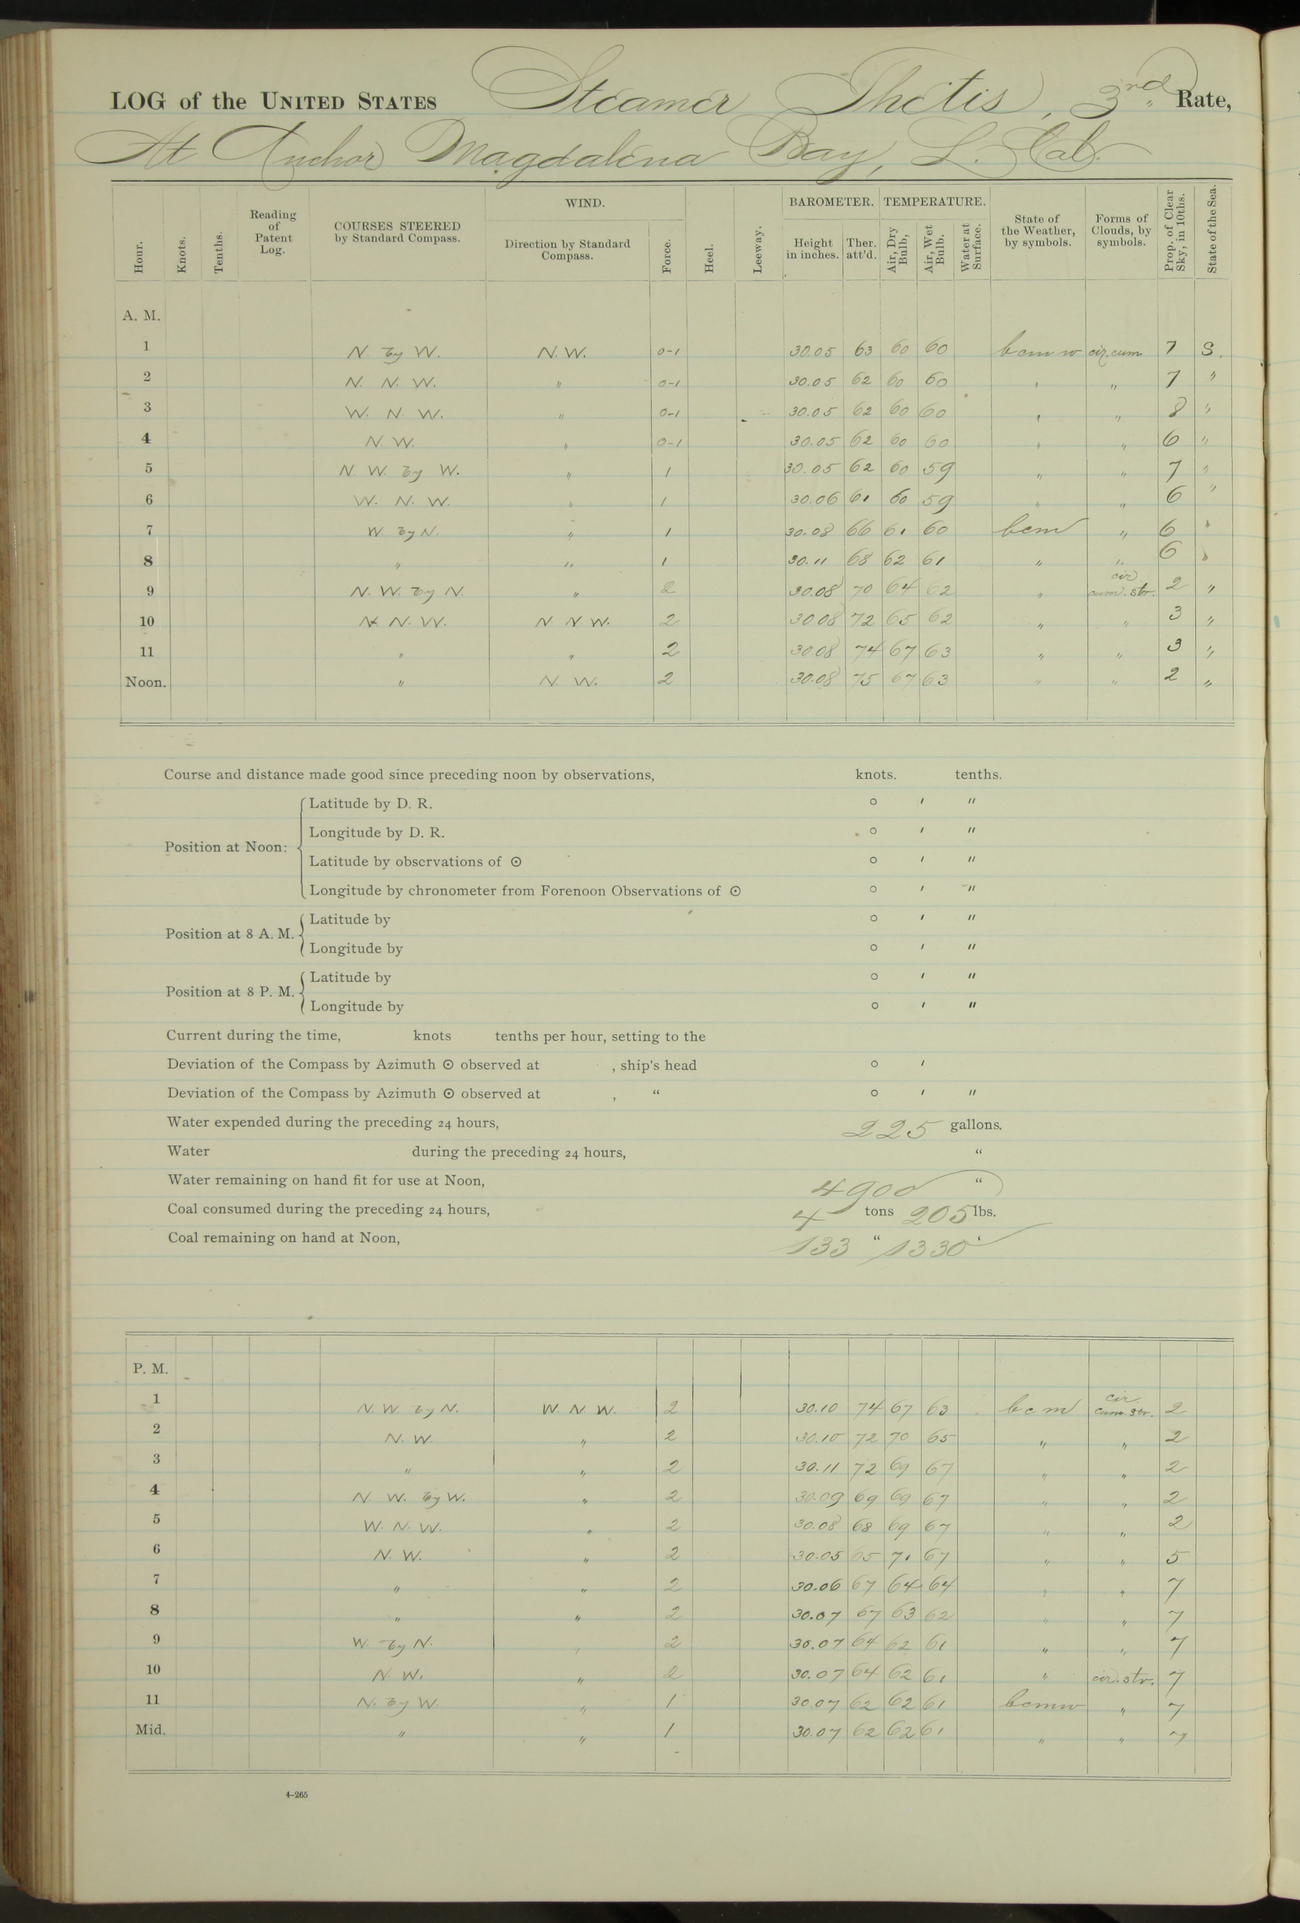 LOG of the UNITED STATES Steamer Thetis, 3rd Rate,
At Anchor Magdalena Bay, L. Cal.
Hour. Knots. Tenths. Reading of Patent Log. COURSES STEERED by Standard Compass. WIND. Direction by Standard Compass. Force. Heel. Leeway. BAROMETER. Height in inches. Ther. att'd. TEMPERATURE. Air, Dry Bulb, Air, Wet Bulb. Water at Surface. State of the Weather, by symbols. Forms of Clouds, by symbols. Prop. of Clear Sky, in 10ths. State of the Sea.
A. M.
1 N by W. N.W. 0-1 30.05 63 60 60 bcmw cir.cum 7 S.
2 N. N. W. " 0-1 30.05 62 60 60 " " 7 "
3 W. N. W. " 0-1 30.05 62 60 60 " " 8 "
4 N W. " 0-1 30.05 62 60 60 " " 6 "
5 N W. by W. " 1 30.05 62 60 59 " " 7 "
6 W. N. W. " 1 30.06 61 60 59 " " 6 "
7 W by N. " 1 30.08 66 61 60 bcm " 6 "
8 " " 1 30.11 68 62 61 " " 6 "
9 N. W. by N. " 2 30.08 70 64 62 " cir cum. str. 2 "
10 N N. W. N N W. 2 30.08 72 65 62 " " 3 "
11 " " 2 30.08 74 67 63 " " 3 "
Noon. " N. W. 2 30.08 75 67 63 " " 2 "
Course and distance made good since preceding noon by observations, knots. tenths.
Position at Noon: Latitude by D. R. ° ′ ″
Longitude by D. R. ° ′ ″
Latitude by observations of ☉ ° ′ ″
Longitude by chronometer from Forenoon Observations of ☉ ° ′ ″
Position at 8 A. M. Latitude by ° ′ ″
Longitude by ° ′ ″
Position at 8 P. M. Latitude by ° ′ ″
Longitude by ° ′ ″
Current during the time, knots tenths per hour, setting to the
Deviation of the Compass by Azimuth ☉ observed at , ship's head ° ′
Deviation of the Compass by Azimuth ☉ observed at , " ° ′ ″
Water expended during the preceding 24 hours, 225 gallons.
Water during the preceding 24 hours, "
Water remaining on hand fit for use at Noon, 4900 "
Coal consumed during the preceding 24 hours, 4 tons 205 lbs.
Coal remaining on hand at Noon, 133 " 1330 "
P. M.
1 N. W by N. W. N W. 2 30.10 74 67 63 bcm cir cum str. 2
2 N. W. " 2 30.10 72 70 65 " " 2
3 " " 2 30.11 72 69 67 " " 2
4 N. W. by W. " 2 30.09 69 69 67 " " 2
5 W. N. W. " 2 30.08 68 69 67 " " 2
6 N. W. " 2 30.05 65 71 67 " " 5
7 " " 2 30.06 67 64 64 " " 7
8 " " 2 30.07 67 63 62 " " 7
9 W. by N. " 2 30.07 64 62 61 " " 7
10 N. W. " 2 30.07 64 62 61 " cir. str. 7
11 N. by W. " 1 30.07 62 62 61 bcmw " 7
Mid. " " 1 30.07 62 62 61 " " 7
4-265